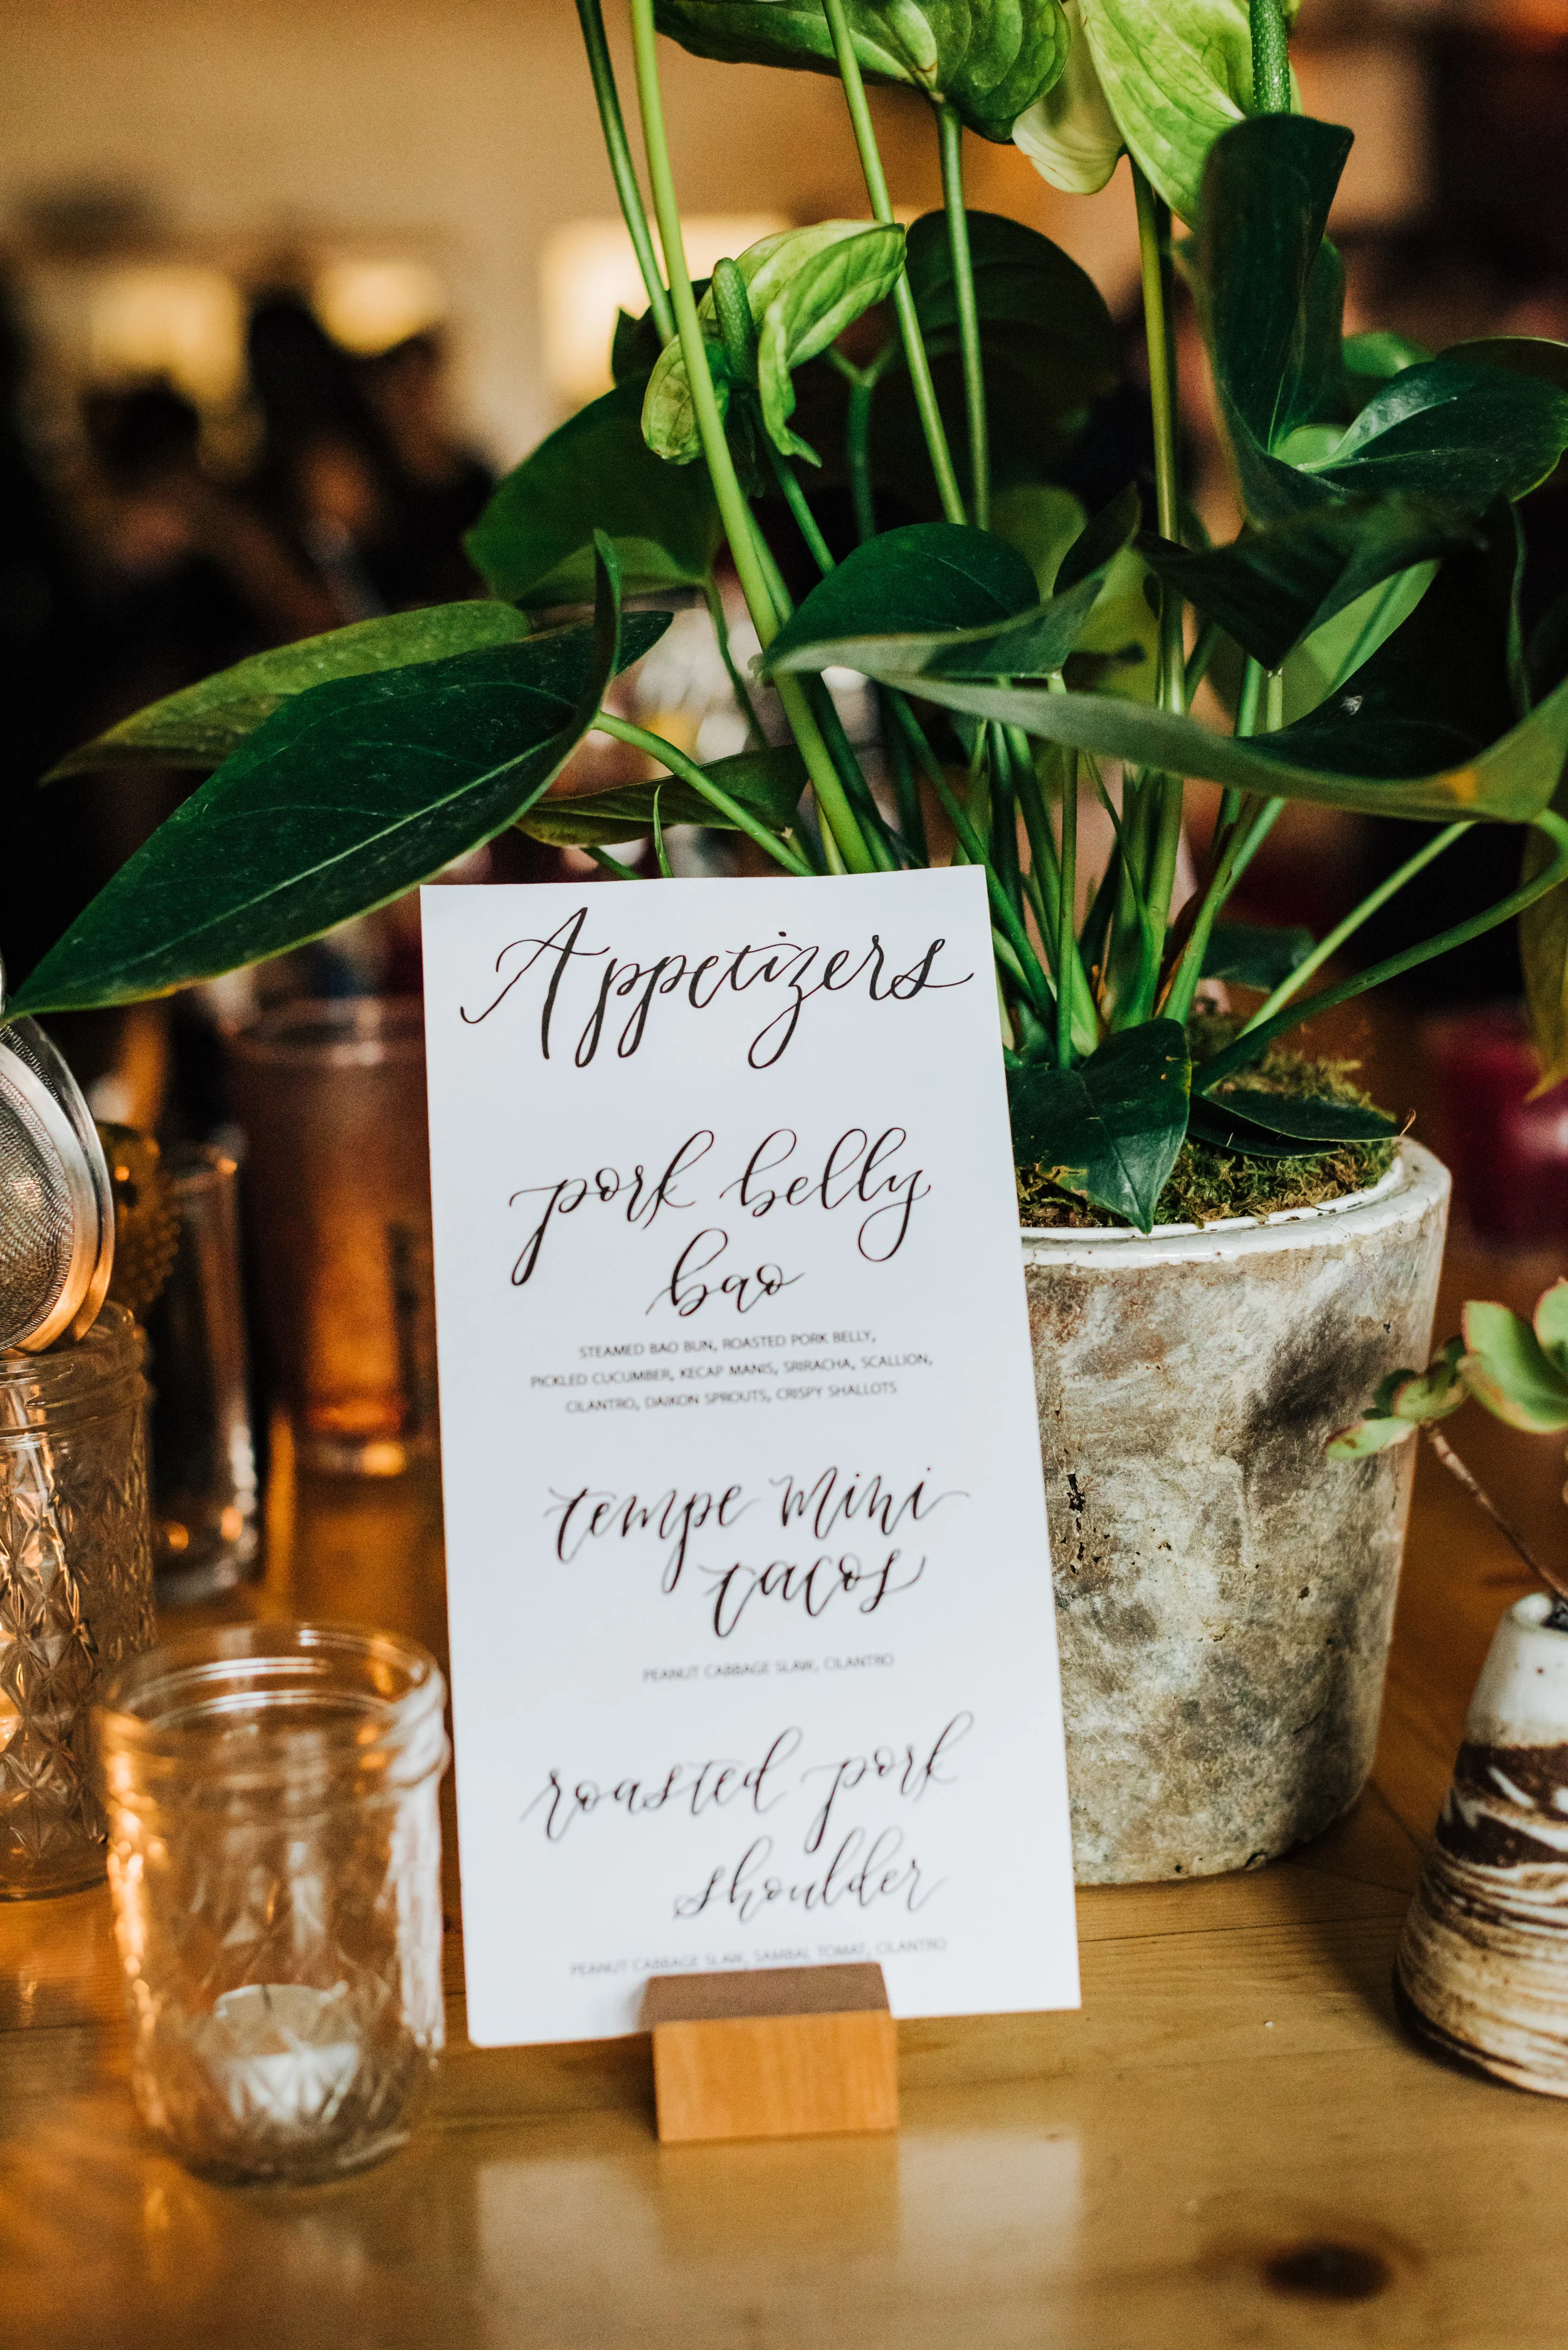 Appetizers
pork belly
bao
STEAMED BAO BUN, ROASTED PORK BELLY,
PICKLED CUCUMBER, KECAP MANIS, SRIRACHA, SCALLION,
CILANTRO, DAIKON SPROUTS, CRISPY SHALLOTS
tempe mini
tacos
PEANUT CABBAGE SLAW, CILANTRO
roasted pork
shoulder
PEANUT CABBAGE SLAW, SAMBAL TOMAT, CILANTRO